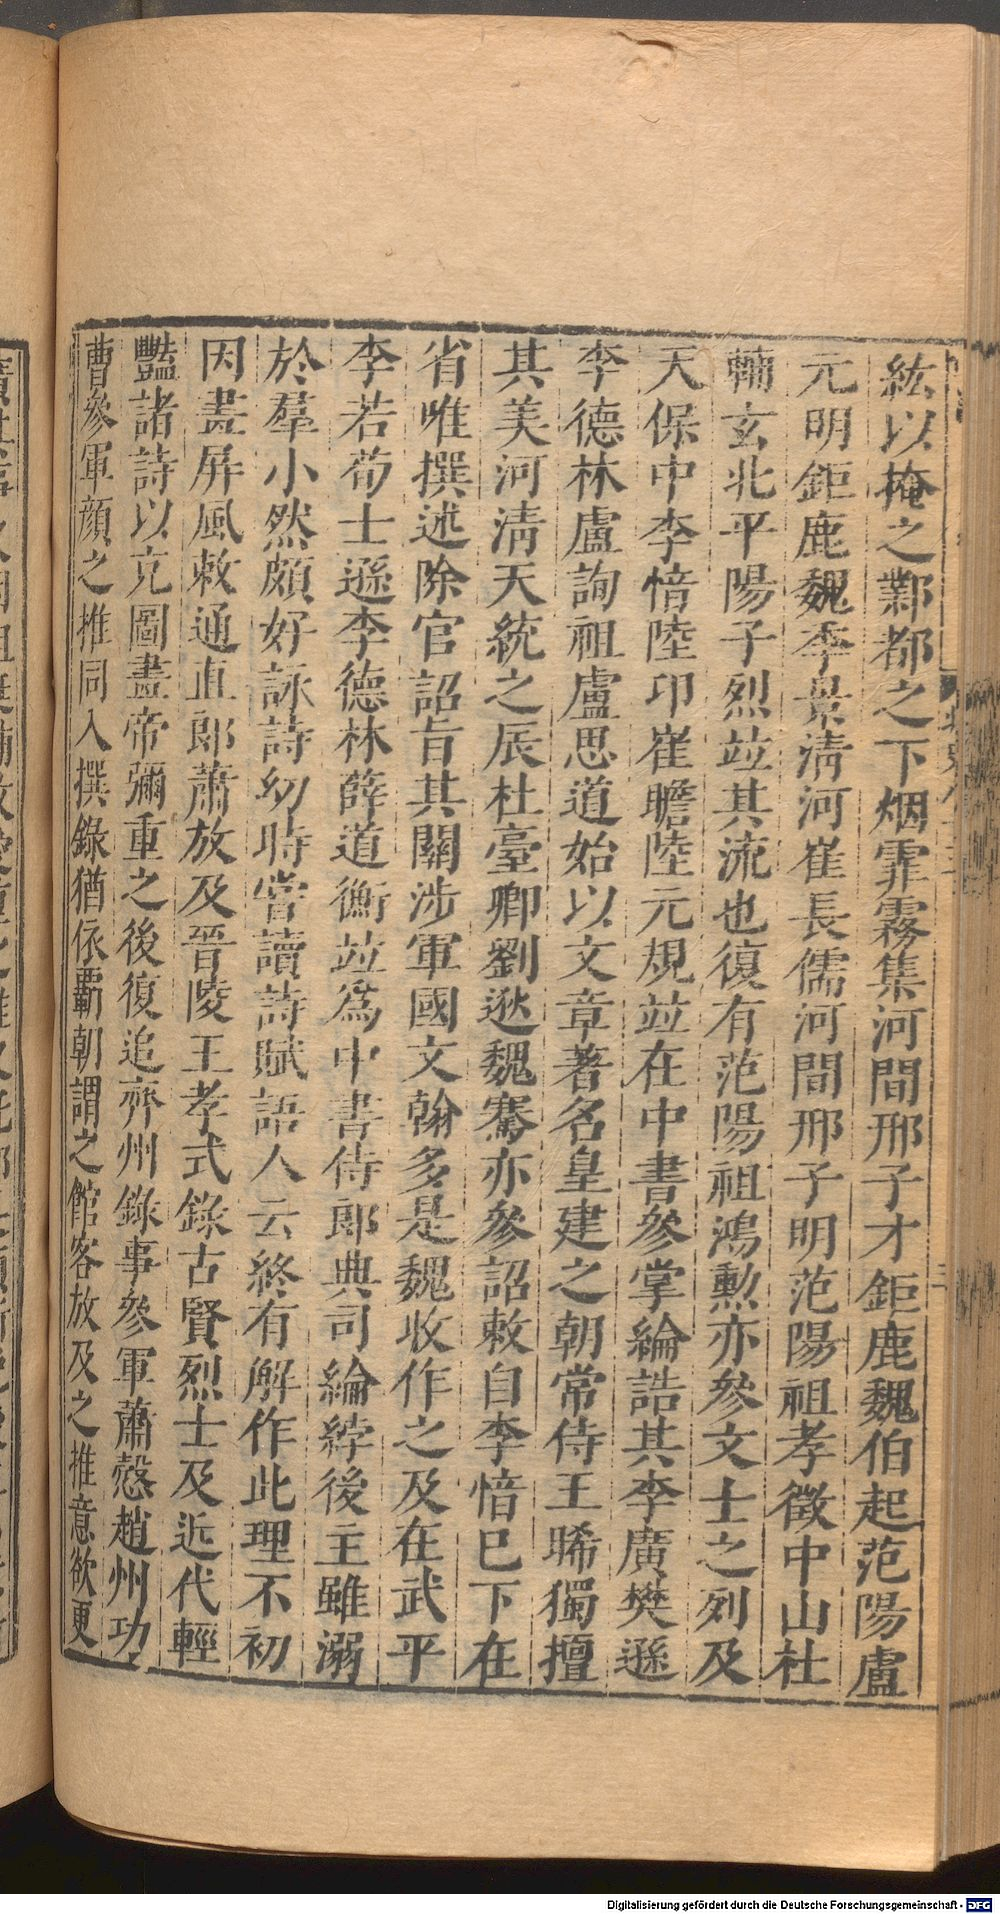 紘以掩之鄴都之下烟霏霧集河間邢子才鉅鹿魏伯起范陽盧
元明鉅鹿魏季景清河崔長儒河間邢子明范陽祖孝徵中山杜
輔玄北平陽子烈竝其流也復有范陽祖鴻勲亦參文士之列及
天保中李愔陸卬崔瞻陸元規竝在中書參掌綸誥其李廣樊遜
李德林盧詢祖盧思道始以文章著名皇建之朝常侍王晞獨擅
其美河清天統之辰杜臺卿劉逖魏騫亦參詔敕自李愔巳下在
省唯撰述除官詔旨其關涉軍國文翰多是魏收作之及在武平
李若荀士遜李德林薛道衡竝爲中書侍郎典司綸綍後主雖溺
於羣小然頗好詠詩幼時嘗讀詩賦語人云終有解作此理不初
因畫屏風敕通直郎蕭放及晉陵王孝式錄古賢烈士及近代輕
豔諸詩以充圖畫帝彌重之後復追齊州錄事參軍蕭慤趙州功
曹參軍顔之推同入撰錄猶依霸朝謂之館客放及之推意欲更
Digitalisierung gefördert durch die Deutsche Forschungsgemeinschaft - DFG